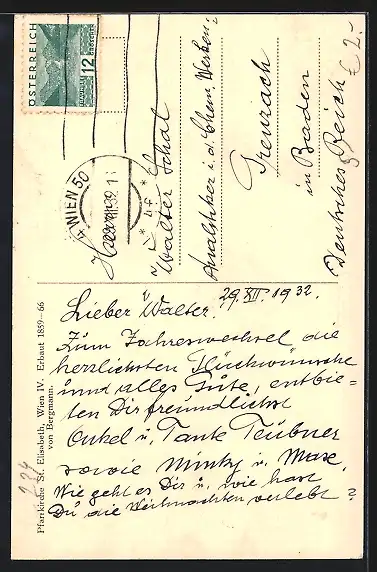 ÖSTERREICH
12
GROSCHEN
WIEN 50
Herrn
Walter Schal
Analytiker i. d. Chem. Werken
Grenzach
in Baden
Deutsches Reich
£ 2.-
Pfarrkirche St. Elisabeth, Wien IV. Erbaut 1859—66
von Bergmann.
234
29. XII. 1932.
Lieber Walter.
Zum Jahreswechsel die
herzlichsten Glückwünsche
und alles Gute, entbie=
ten Dir freundlichst
Onkel u. Tante Teubner
sowie Minky u. Maxe,
Wie geht es Dir u. wie hast
Du die Weihnachten verlebt?